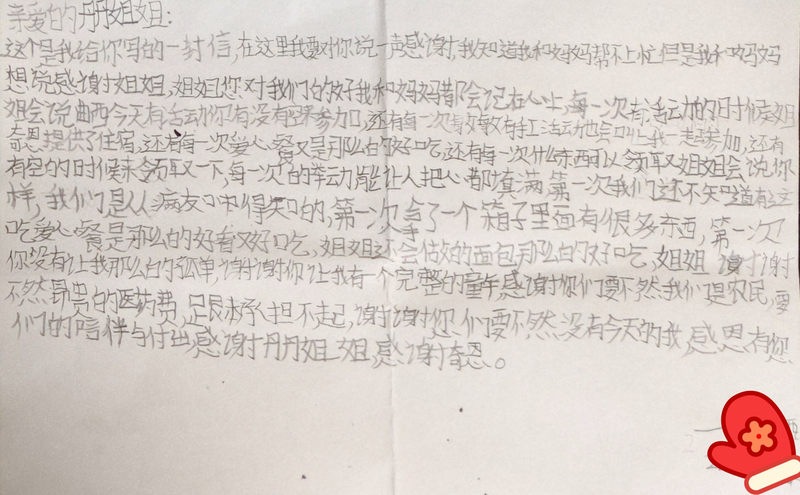 亲爱的丹丹姐姐:
这个是我给你写的一封信,在这里我要对你说一声感谢,我知道我和妈妈帮不上忙但是我和妈妈
想说感谢姐姐,姐姐您对我们的好我和妈妈都会记在心上,每一次有活动的时候姐
姐会说曲西今天有活动你有没有空来参加,还有每一次教手工活动也会叫上我一起参加,还有
奇恩提供了住宿,还有每一次爱心餐又是那么的好吃,还有每一次什么东西可以领取姐姐会说你
有空的时候来领取一下,每一次的举动能让人把心都填满第一次我们还不知道有这
样,我们是从病友口中得知的,第一次拿了一个箱子里面有很多东西,第一次
吃爱心餐是那么的好看又好吃,姐姐还会做的面包那么的好吃,姐姐谢谢
你没有让我那么的孤单,谢谢你让我有一个完整的童年,感谢你们要不然我们是农民,要
不然昂贵的医药费,是承担不起,谢谢您们要不然没有今天的我,感恩有您
们的陪伴与付出,感谢丹丹姐姐,感谢奇恩。